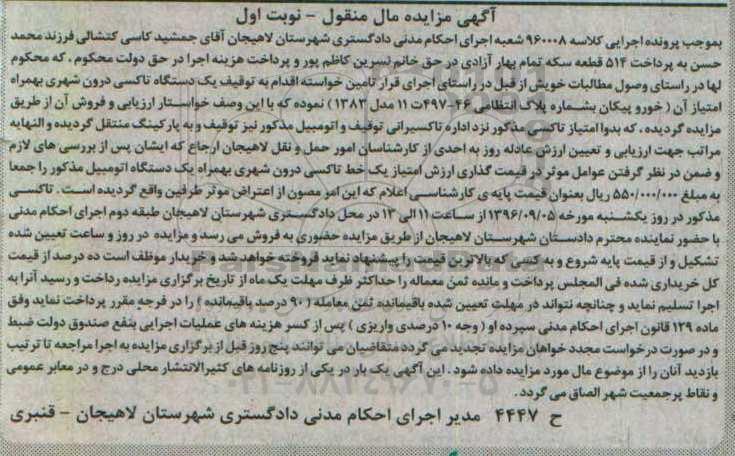 آگهی مزایده مال منقول - نوبت اول
بموجب پرونده اجرایی کلاسه ۹۶۰۰۰۸ شعبه اجرای احکام مدنی دادگستری شهرستان لاهیجان آقای جمشید کاسی کتشالی فرزند محمد
حسن به پرداخت ۵۱۴ قطعه سکه تمام بهار آزادی در حق خانم نسرین کاظم پور و پرداخت هزینه اجرا در حق دولت محکوم ، که محکوم
لها در راستای وصول مطالبات خویش از قبل در راستای اجرای قرار تامین خواسته اقدام به توقیف یک دستگاه تاکسی درون شهری بهمراه
امتیاز آن ( خودرو پیکان بشماره پلاک انتظامی ۴۶-۴۹۷ت ۱۱ مدل ۱۳۸۳ ) نموده که با این وصف خواستار ارزیابی و فروش آن از طریق
مزایده گردیده ، که بدوا امتیاز تاکسی مذکور نزد اداره تاکسیرانی توقیف و اتومبیل مذکور نیز توقیف و به پارکینگ منتقل گردیده و النهایه
مراتب جهت ارزیابی و تعیین ارزش عادله روز به احدی از کارشناسان امور حمل و نقل لاهیجان ارجاع که ایشان پس از بررسی های لازم
و ضمن در نظر گرفتن عوامل موثر در قیمت گذاری ارزش امتیاز یک خط تاکسی درون شهری بهمراه یک دستگاه اتومبیل مذکور را جمعا
به مبلغ ۵۵۰/۰۰۰/۰۰۰ ریال بعنوان قیمت پایه ی کارشناسی اعلام که این امر مصون از اعتراض موثر طرفین واقع گردیده است . تاکسی
مذکور در روز یکشنبه مورخه ۱۳۹۶/۰۹/۰۵ از ساعت ۱۱ الی ۱۳ در محل دادگستری شهرستان لاهیجان طبقه دوم اجرای احکام مدنی
با حضور نماینده محترم دادستان شهرستان لاهیجان از طریق مزایده حضوری به فروش می رسد و مزایده در روز و ساعت تعیین شده
تشکیل و از قیمت پایه شروع و به کسی که بالاترین قیمت را پیشنهاد نماید فروخته خواهد شد و خریدار موظف است ده درصد از قیمت
کل خریداری شده فی المجلس پرداخت و مانده ثمن معماله را حداکثر ظرف مهلت یک ماه از تاریخ برگزاری مزایده پرداخت و رسید آنرا به
اجرا تسلیم نماید و چنانچه نتواند در مهلت تعیین شده باقیمانده ثمن معامله ( ۹۰ درصد باقیمانده ) را در فرجه مقرر پرداخت نماید وفق
ماده ۱۲۹ قانون اجرای احکام مدنی سپرده او ( وجه ۱۰ درصدی واریزی ) پس از کسر هزینه های عملیات اجرایی بنفع صندوق دولت ضبط
و در صورت درخواست مجدد خواهان مزایده تجدید می گردد متقاضیان می توانند پنج روز قبل از برگزاری مزایده به اجرا مراجعه تا ترتیب
بازدید آنان را از موضوع مال مورد مزایده داده شود . این آگهی یک بار در یکی از روزنامه های کثیرالانتشار محلی درج و در معابر عمومی
و نقاط پرجمعیت شهر الصاق می گردد.
ح ۴۴۴۷ مدیر اجرای احکام مدنی دادگستری شهرستان لاهیجان - قنبری